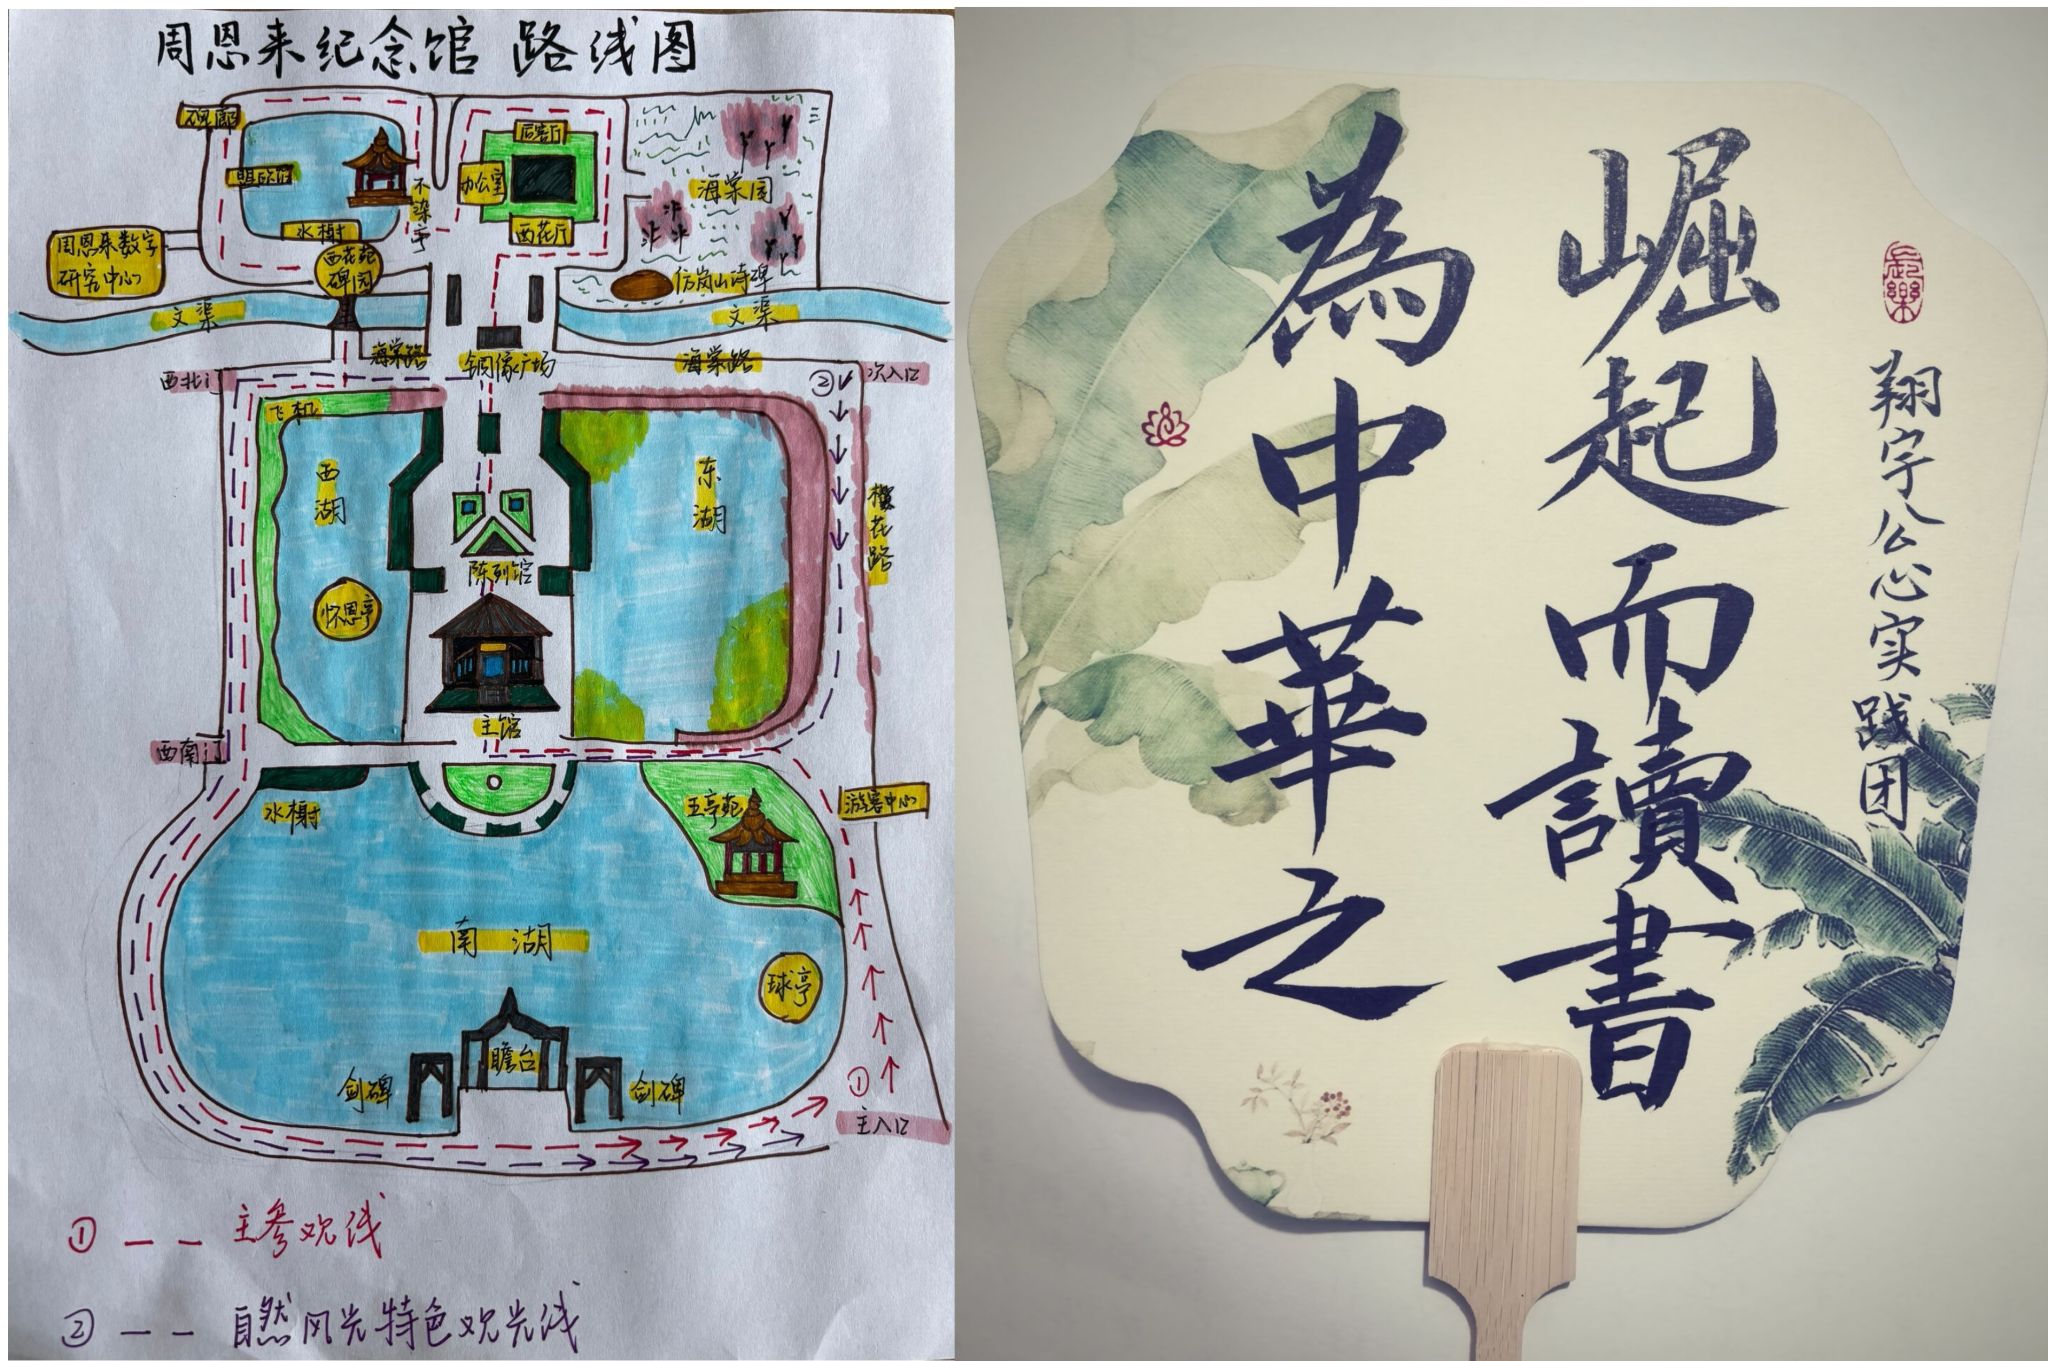 周恩来纪念馆 路线图
碑廊
后客厅
办公室
海棠园
不染亭
水榭
西花厅
周恩来数字
研究中心
西花苑
碑园
仿岚山诗碑
文渠
文渠
海棠路
铜像广场
海棠路
西北门
②
次入口
飞机
西湖
东湖
樱花路
陈列馆
怀恩亭
主馆
西南门
水榭
五亭苑
游客中心
南湖
球亭
瞻台
剑碑
剑碑
①
主入口
① 主参观线
② 自然风光特色观光线
為中華之
崛起而讀書
翔宇公心实践团